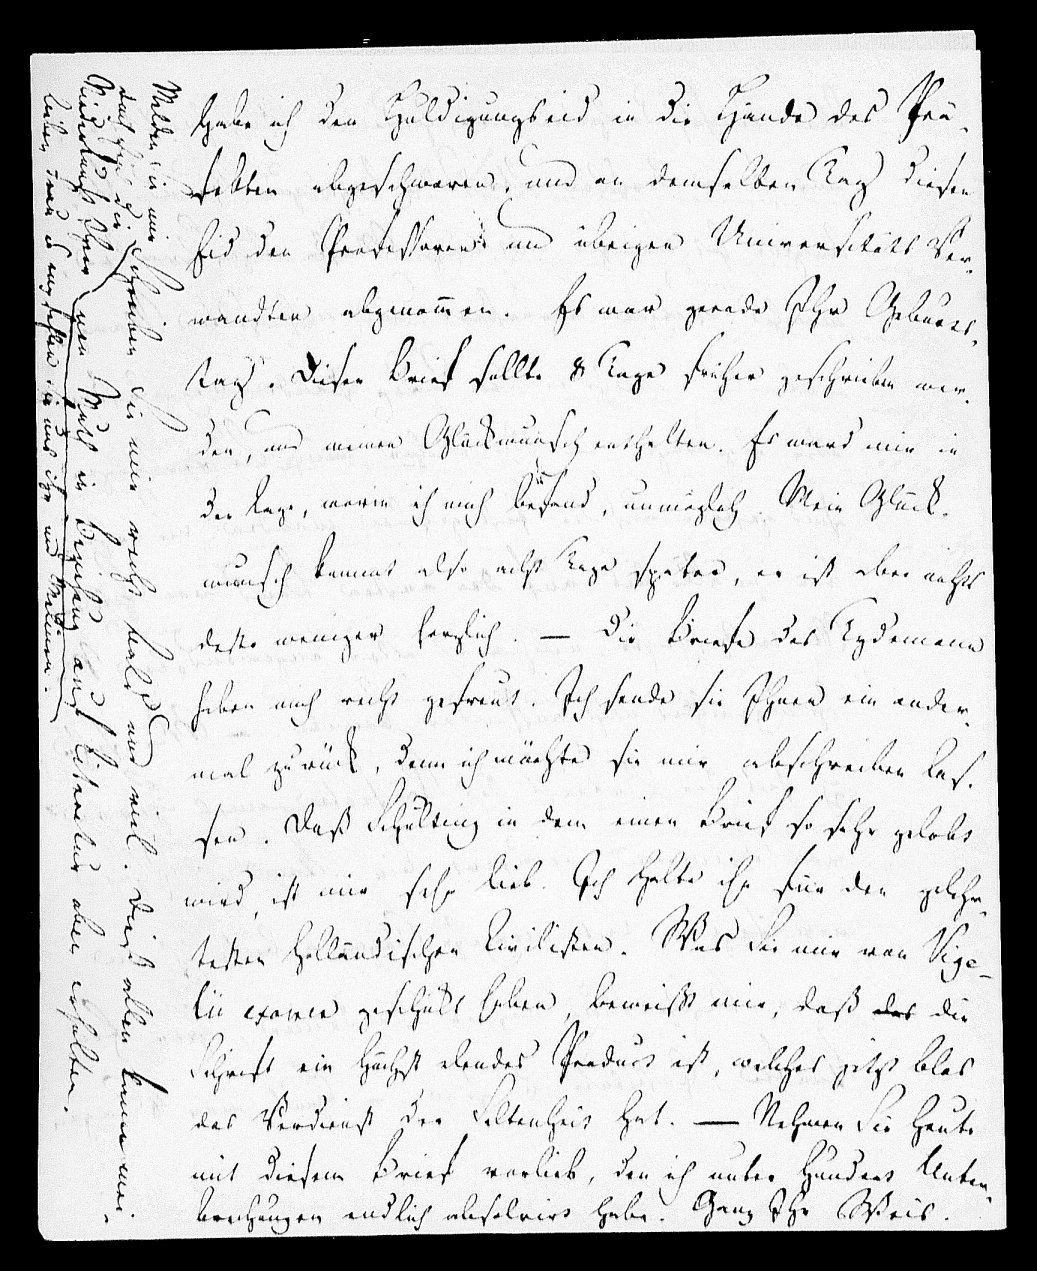 habe ich den Huldigungseid in die Hände des Prä-
fekten abgeschworen, und an demselben Tag diesen
Eid den Professoren und übrigen Universitäts Ver-
wandten abgenommen. Es war gerade Ihr Geburts-
tag. Dieser Brief sollte 8 Tage früher geschrieben wer-
den, und meinen Glückwunsch enthalten. Es ward mir in
der Lage, worin ich mich befand, unmöglich. Mein Glück-
wunsch kommt also acht Tage später, er ist aber nichts
desto weniger herzlich. — Die Briefe des Tydeman
haben mich recht gefreut. Ich sende sie Ihnen ein ander-
mal zurück, denn ich möchte sie mir abschreiben las-
sen. Daß Schulting in dem einen Brief so sehr gelobt
wird, ist mir sehr lieb. Ich halte ihn für den gelehr-
testen holländischen Civilisten. Was Sie mir von Vige-
lii geschickt haben, beweißt mir, daß das die
Schrift ein höchst elendes Product ist, welches jetzt blos
das Verdienst der Seltenheit hat. — Nehmen Sie heute
mit diesem Brief vorlieb, den ich unter hundert Unter-
brechungen endlich absolvirt habe. Ganz Ihr Weis.
Melden Sie mir
doch, und schreiben Sie mir recht bald und viel. Dies allein kann mei-
Niederkunft Ihrer nen Muth in Beziehung auf Literatur aber erhalten.
lieben Frau u empfehlen Sie uns ihr und Melinen.